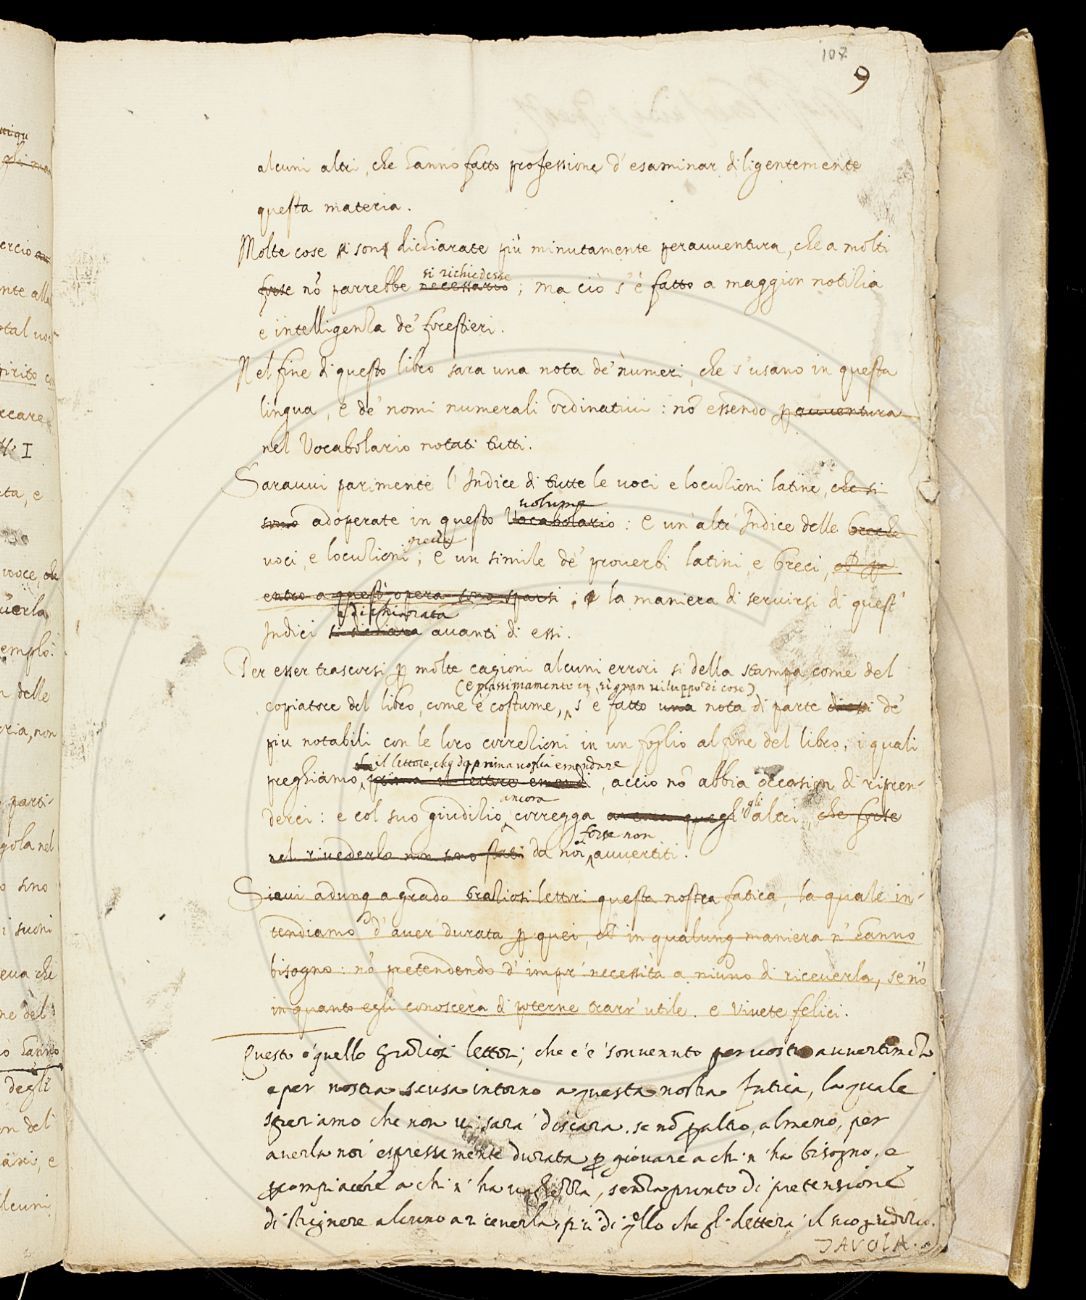 107
9
alcuni altri, che hanno fatto professione d'esaminar diligentemente
questa materia.
Molte cose si son dichiarate più minutamente peravventura, che a molti
si richiedesse
forse nō parrebbe necessario; ma ciò s'è fatto a maggior notizia
e intelligenza de' forestieri.
Nel fine di questo libro sara una nota de' nùmeri, che s'usano in questa
lingua, e de' nomi numerali ordinativi: nō essendo pauuentura
nel Vocabolario notati tutti.
Sarauui parimente l'Indice di tutte le uoci e locuzioni latine, che si
volume
sono adoperate in questo Vocabolario: E un'altr'Indice delle Greche
greche
uoci, e locuzioni; e un simile de' prouerbi latini, e Greci,
entro a quest'opera sono sparsi; la maniera di seruirsi di quest'
è dichiarata
Indici si dichiara auanti di essi.
Per esser trascorsi p molte cagioni alcuni errori si della stampa, come del
(e massimamente in sì gran uiluppo di cose)
copiatore del libro, come è costume, s'è fatto una nota di parte de'
più notabili con le loro correzioni in un foglio al fine del libro, i quali
il lettore, che da prima uoglia emendare
preghiamo, il lettore emendi, acciò nō abbia occasion di ripren-
ancora
gli
derci: e col suo giudizio corregga ancora quegl'altri, che forse
forse non
nel riuederlo non sono stati da noi auuertiti.
Siaui adunq a grado Graziosi lettori questa nostra fatica, la quale in-
tendiamo d'auer durata p quei, che in qualunq maniera n'hanno
bisogno: nō pretendendo d'impor necessità a niuno di riceuerla, se nō
inquanto egli conoscerà di poterne trarr'utile. e Viuete felici.
Questo è quello Graziosi lettori, che c'è souuenuto per uostro auuertimēto
e per nostra scusa intorno a questa nostra fatica, la quale
speriamo che non ui sarà discara, se nō p altro, almeno, per
auerla noi espressamente durata p giouare a chi n'ha bisogno, e
compiacere a chi n'ha uaghezza, senza punto di pretensione
di strignere alcuno a riceuerla, più di q̄llo che gli detterà il suo giudizio.
TAVOLA.